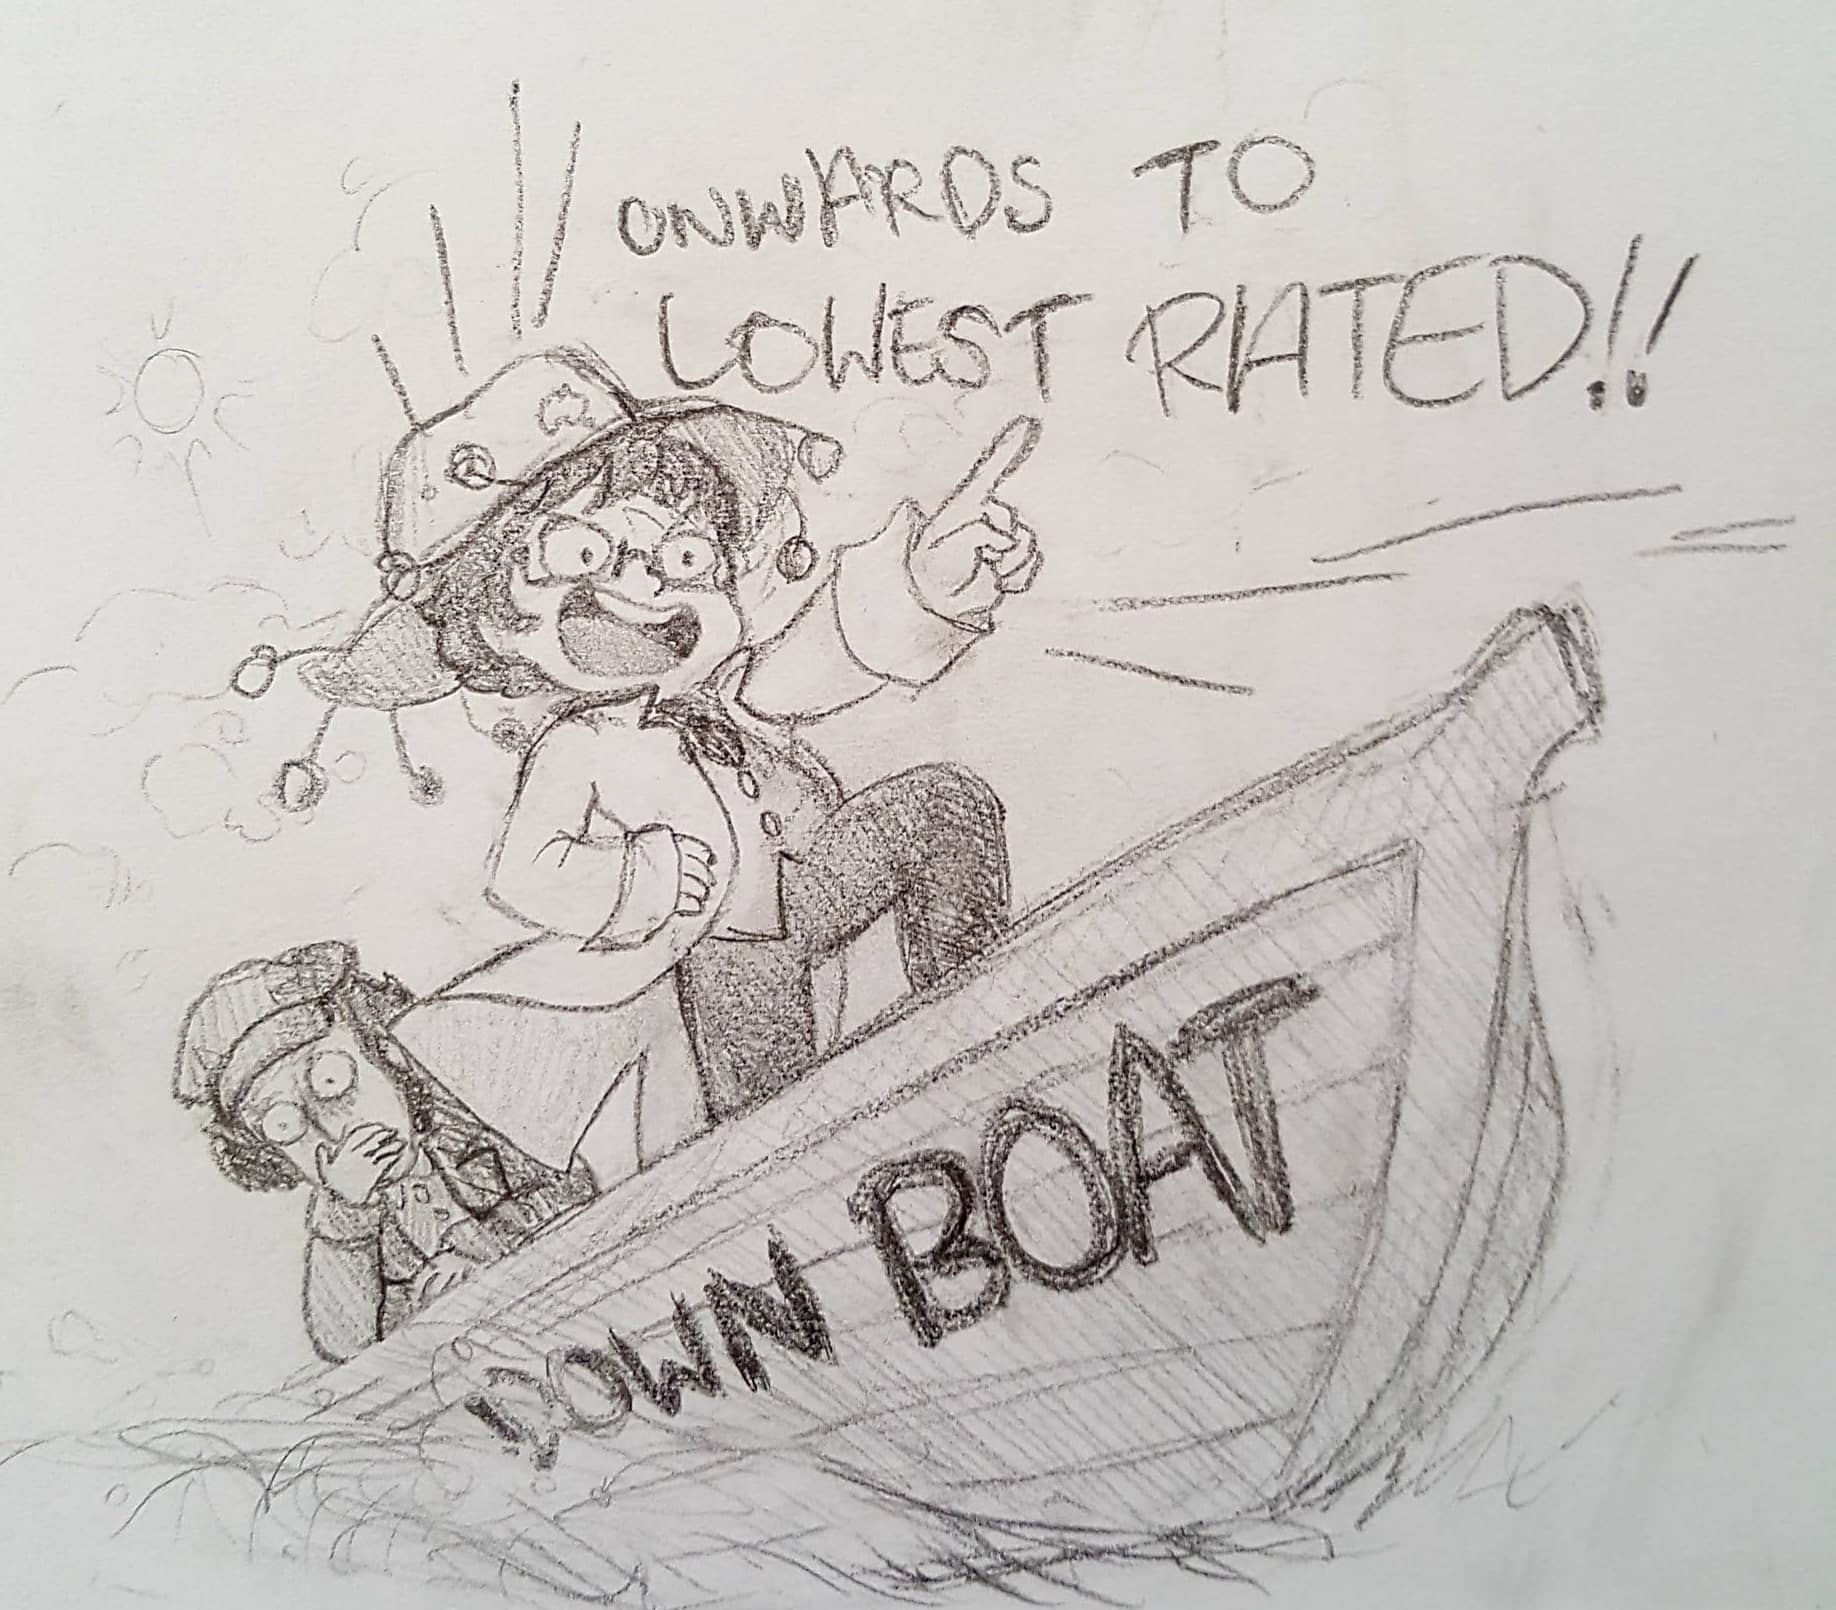 ONWARDS TO
LOWEST RATED!!
DOWN BOAT